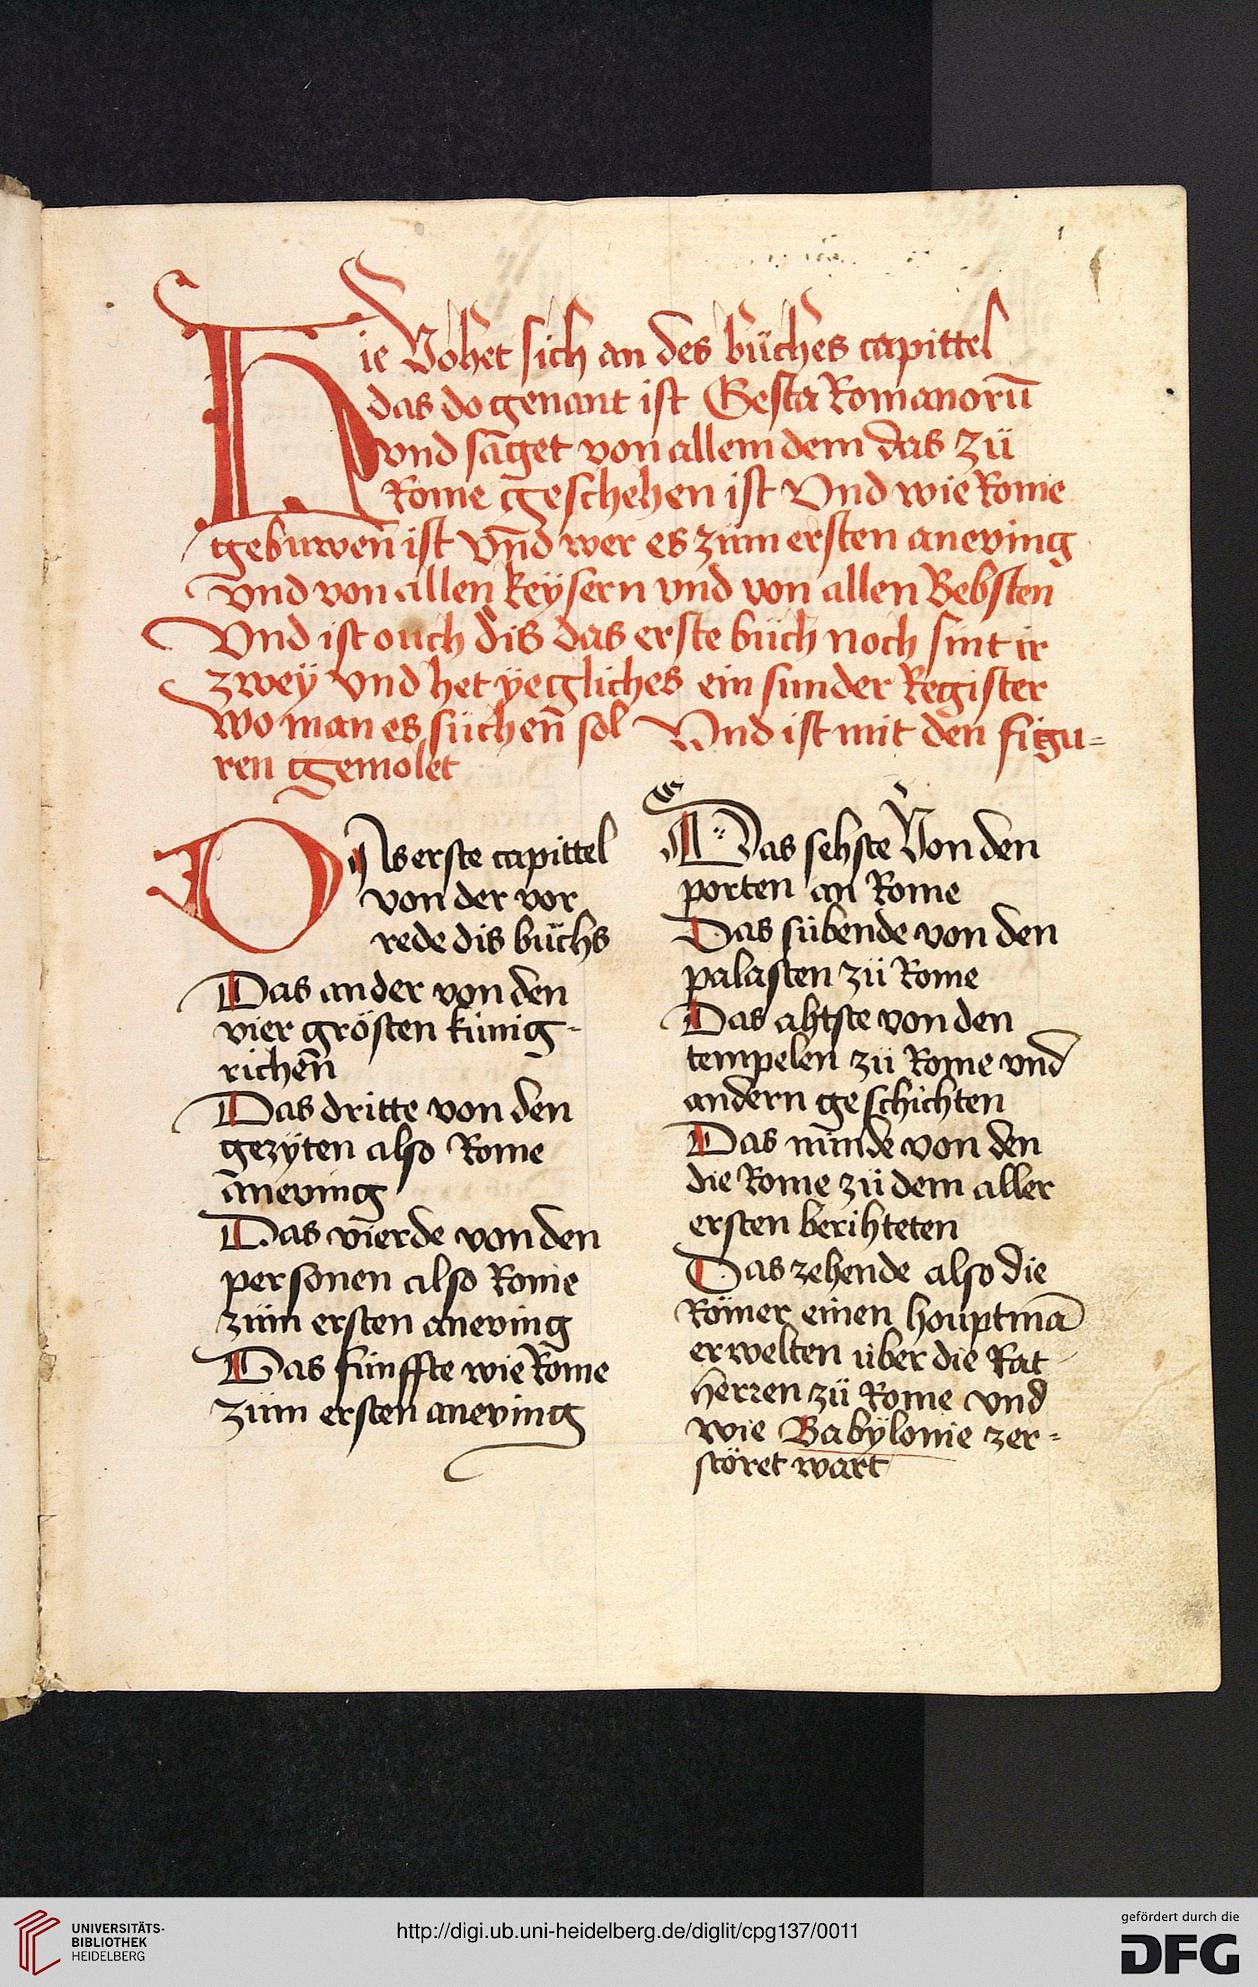 Hie Vohet sich an des bůches capittel
das do genant ist Gesta Romanorū
vnd saget von allem dem das zů
Rome geschehen ist Vnd wie Rome
gebuwen̄ ist Vn̄d wer es zům ersten aneving
vnd von allen keÿsern vnd von allen Bebsten
Vnd ist ouch dis das erste bůch noch sint ir
zweÿ vnd het ÿegliches ein sunder Register
wo man es sůchen̄ sol Vnd ist mit den figu=
ren gemolet
DAs erste capittel
von der vor
rede dis bůchs
Das ander von den
vier grösten künig-
richen̄
Das dritte von den
gezÿten also Rome
āneving
Das vierde von den
personen also Rome
zům ersten aneving
Das fünffte wie Rome
zům ersten aneving
Das sehste Von den
porten an Rome
Das sübende von den
palasten zů Rome
Das ahtste von den
tempelen zů Rome vnd
andern geschichten
Das nünde von den
die Rome zů dem aller
ersten berihteten
Das zehende also die
Römer einen houptmā
erwelten über die Rat
herren zů Rome vnd
wie Babÿlonie zer=
störet wart
UNIVERSITÄTS-
BIBLIOTHEK
HEIDELBERG
http://digi.ub.uni-heidelberg.de/diglit/cpg137/0011
gefördert durch die
DFG